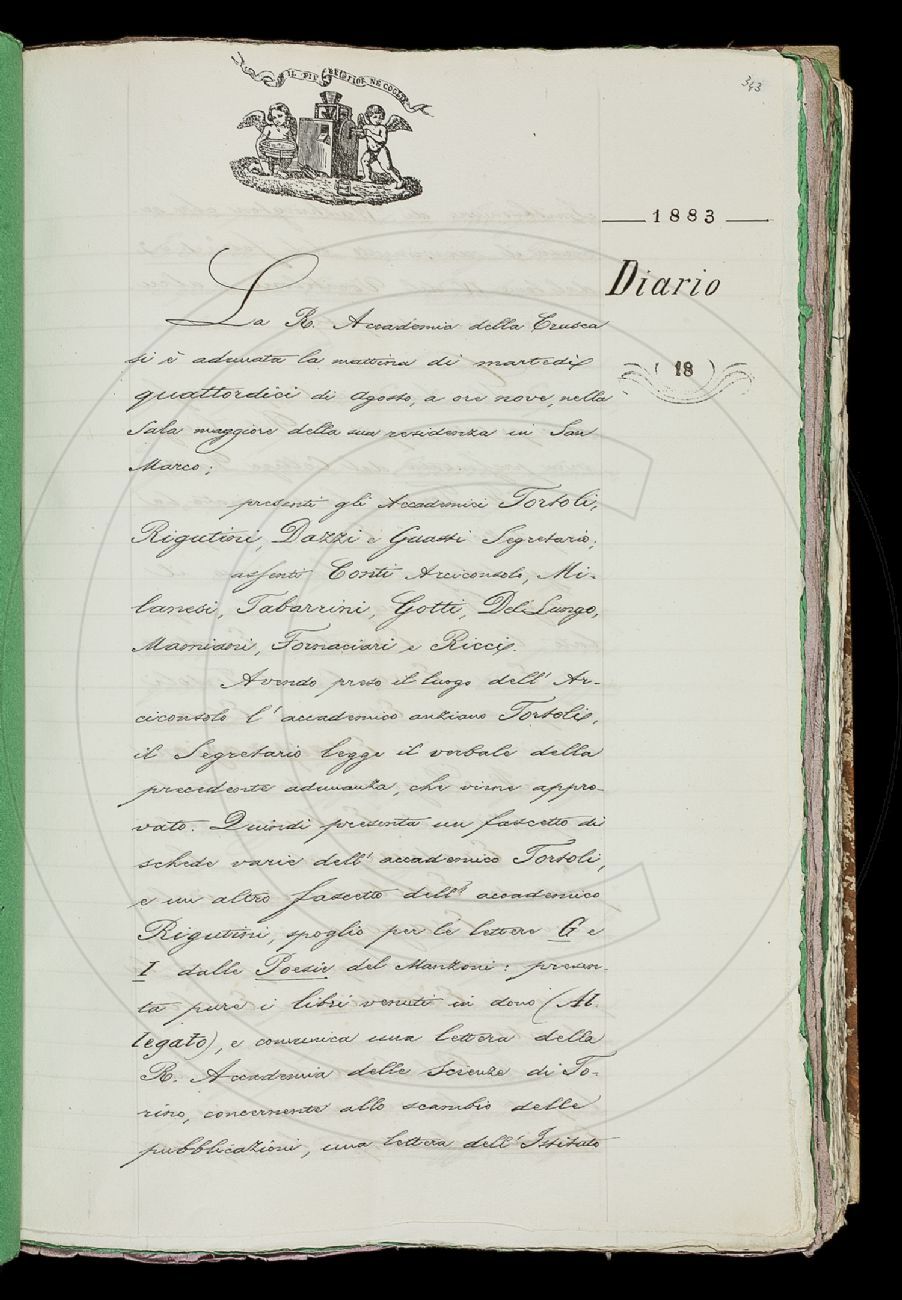 IL PIÙ BEL FIOR NE COGLIE
343
1883
Diario
( 18 )
La R. Accademia della Crusca
si è adunata la mattina di martedì
quattordici di Agosto, a ore nove, nella
Sala maggiore della sua residenza in San
Marco;
presenti gli Accademici Tortoli,
Rigutini, Dazzi e Guasti Segretario;
assenti Conti Arciconsolo, Mi-
lanesi, Tabarrini, Gotti, Del Lungo,
Mamiani, Fornaciari e Ricci.
Avendo preso il luogo dell' Ar-
ciconsolo l' accademico anziano Tortoli,
il Segretario legge il verbale della
precedente adunanza, che viene appro-
vato. Quindi presenta un fascetto di
schede varie dell' accademico Tortoli,
e un altro fascetto dell' accademico
Rigutini, spoglio per le lettere G e
I dalle Poesie del Manzoni: presen-
ta pure i libri venuti in dono (Al-
legato), e comunica una lettera della
R. Accademia delle Scienze di To-
rino, concernente allo scambio delle
pubblicazioni, una lettera dell' Istituto